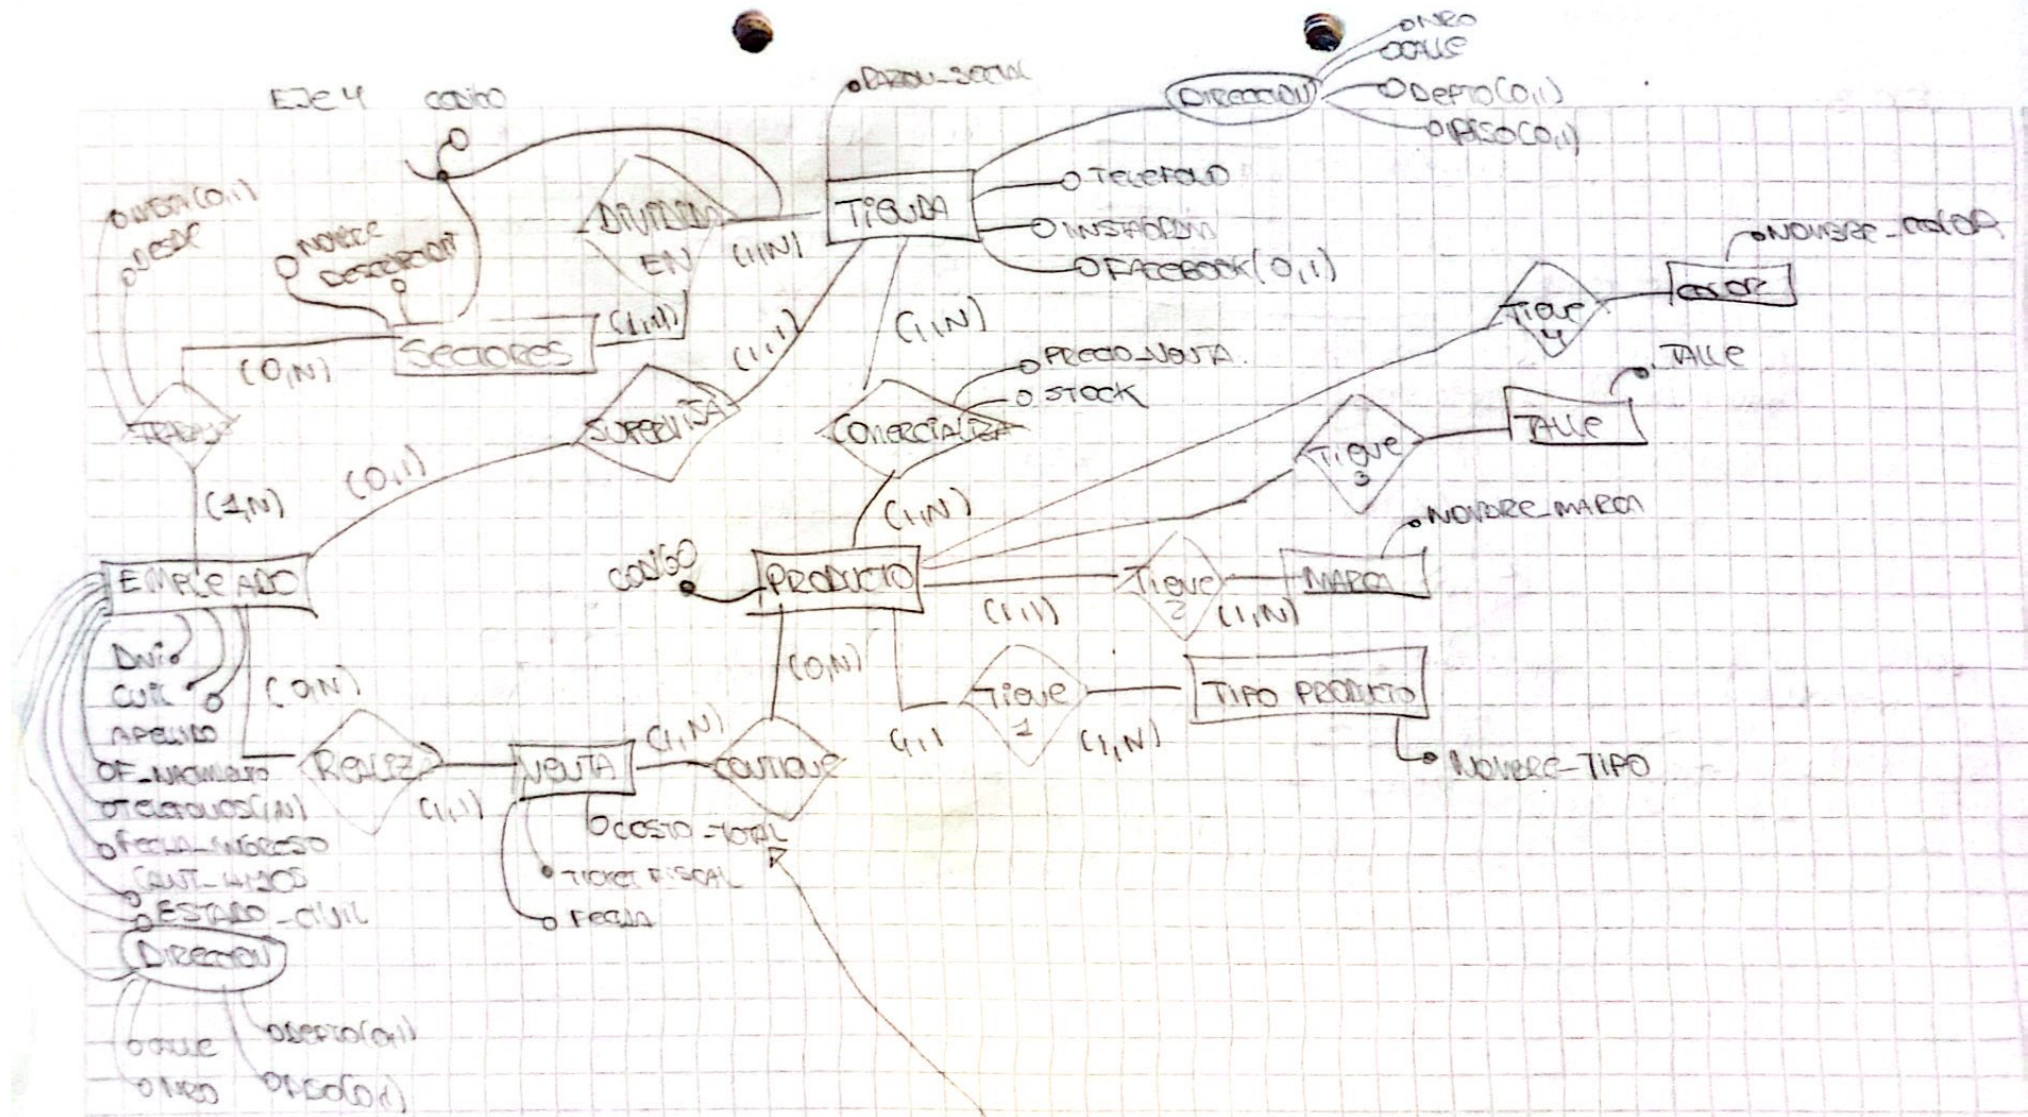 EJE 4
CODIGO
RAZON_SOCIAL
DIRECCION
NRO
CALLE
DEPTO(0,1)
PISO(0,1)
TELEFONO
INSTAGRAM
FACEBOOK(0,1)
TIENDA
DIVIDIDA
EN
(1,N)
HASTA(0,1)
DESDE
NOMBRE
DESCRIPCION
SECTORES
(1,1)
(0,N)
(1,1)
(1,N)
SUPERVISA
(0,1)
(1,N)
COMERCIALIZA
PRECIO_VENTA
STOCK
(1,N)
NOMBRE_COLOR
COLOR
TIENE
4
TALLE
TALLE
TIENE
3
NOMBRE_MARCA
MARCA
TIENE
2
(1,1)
(1,N)
EMPLEADO
CODIGO
PRODUCTO
DNI
CUIL
APELLIDO
F_NACIMIENTO
TELEFONOS(1,N)
FECHA_INGRESO
CANT_HIJOS
ESTADO_CIVIL
DIRECCION
CALLE
NRO
DEPTO(0,1)
PISO(0,1)
(0,N)
REALIZA
(1,1)
VENTA
(1,N)
CONTIENE
(0,N)
COSTO_TOTAL
TICKET FISCAL
FECHA
1,1
TIENE
1
(1,N)
TIPO PRODUCTO
NOMBRE-TIPO